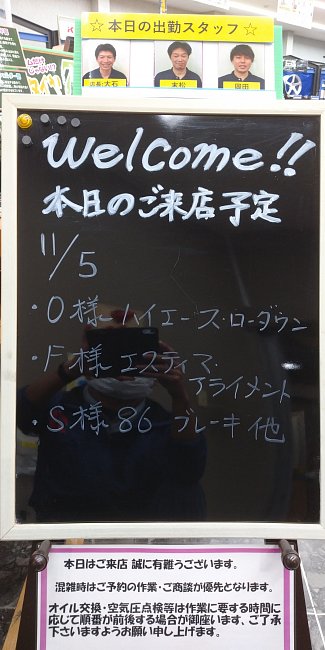 ☆本日の出勤スタッフ☆
店長:大石
末松
岡田
Welcome!!
本日のご来店予定
11/5
・O様 ハイエース・ローダウン
・F様 エスティマ・
アライメント
・S様 86 ブレーキ他
本日はご来店 誠に有難うございます。
混雑時はご予約の作業・ご商談が優先となります。
オイル交換・空気圧点検等は作業に要する時間に
応じて順番が前後する場合が御座います、ご了承
下さいますようお願い申し上げます。